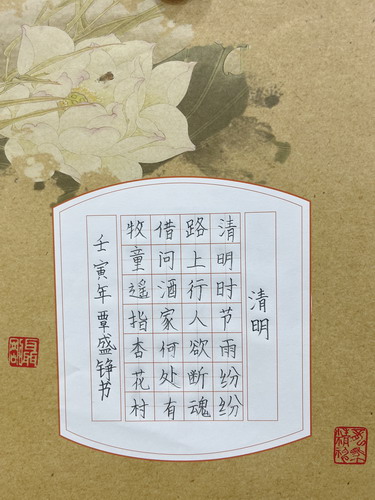 清明
清明时节雨纷纷
路上行人欲断魂
借问酒家何处有
牧童遥指杏花村
壬寅年覃盛铮书